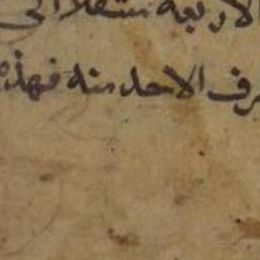 الاربعة منتقلا الى
الاحد منه فهذه